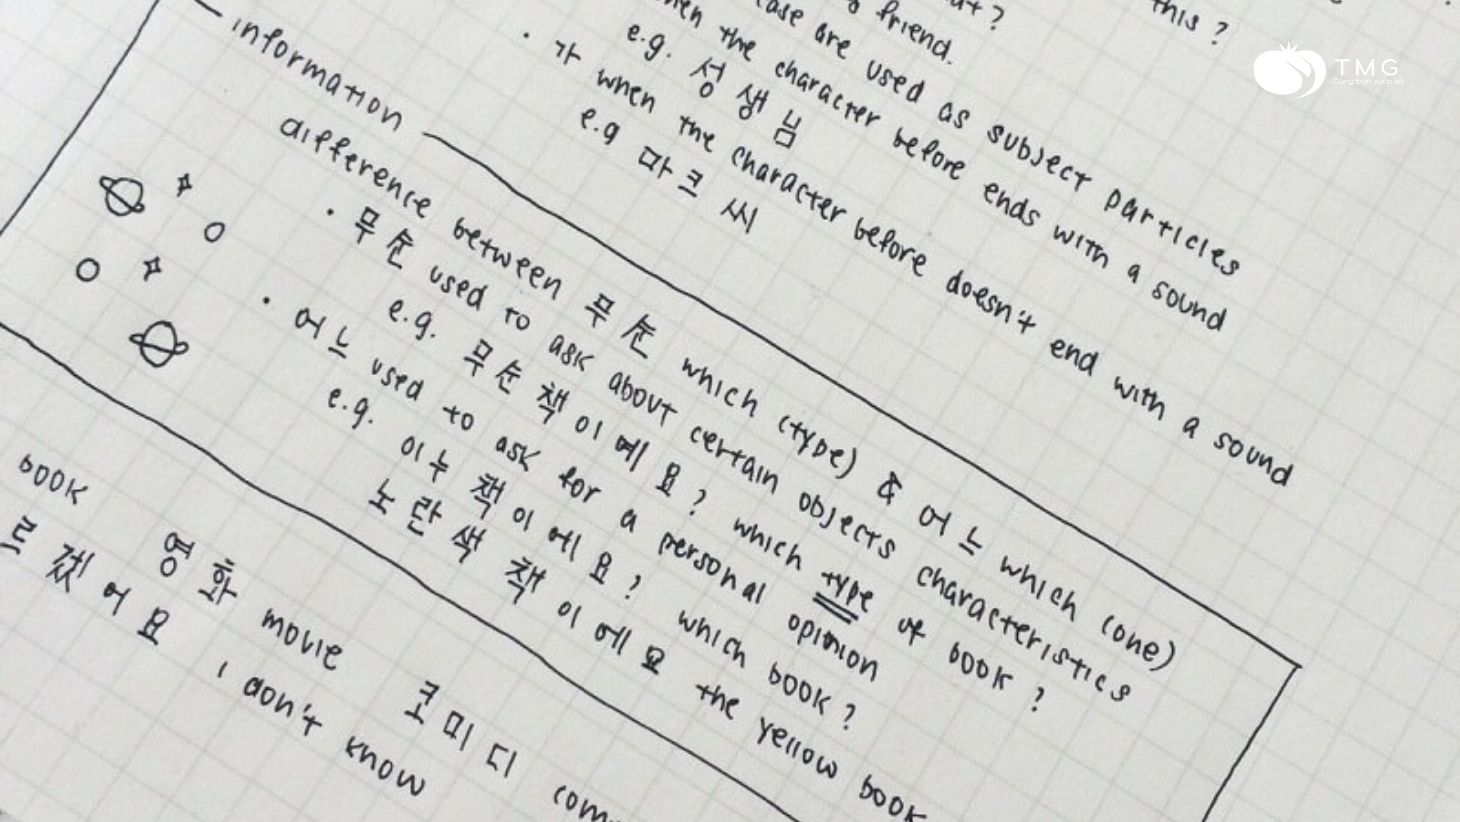 this ?
friend.
ase are used as subject particles
the character before ends with a sound
e.g. 성생님
· 가 when the character before doesn't end with a sound
e.g 마크 씨
information
difference between 무슨 which (type) & 어느 which (one)
· 무슨 used to ask about certain objects characteristics
e.g. 무슨 책이예요? which type of book?
· 어느 used to ask for a personal opinion
e.g. 이누 책이에요? which book?
노란색 책이에요 the yellow book
book 영화 movie 코미디 com
르겠어요 i don't know
TMG